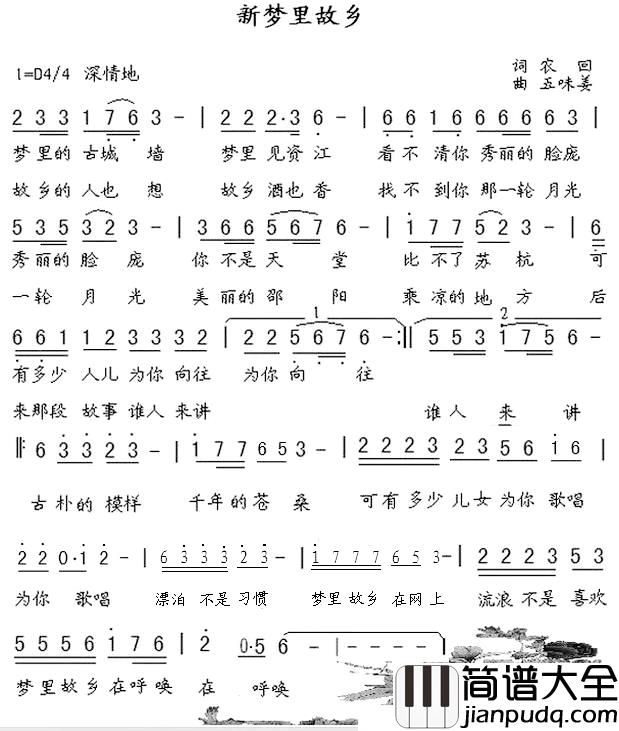 新梦里故乡
1=D4/4 深情地
词 农 回
曲 五味姜
2 3 3 1 7 6 3 - | 2 2 2·3 6 - | 6 6 1 6 6 6 6 6 3 |
梦里的 古城 墙 梦里 见资江 看不 清你 秀丽的 脸庞
故乡的 人也 想 故乡 酒也香 找不 到你 那一轮 月光
5 3 5 3 2 3 - | 3 6 6 5 6 7 6 - | 1 7 7 5 2 3 - | 6
秀丽的 脸 庞 你 不是 天 堂 比 不了 苏 杭 可
一轮 月 光 美 丽的 邵 阳 乘 凉的 地 方 后
6 6 1 1 2 3 3 3 2 | 2 2 5 6 7 6 - :|| 5 5 3 1 7 5 6 -
1 2
有多少 人儿 为你 向往 为你 向 往
来那段 故事 谁人 来讲 谁人 来 讲
||: 6 3 3 2 3 - | 1 7 7 6 5 3 - | 2 2 2 3 2 3 5 6 1 6 |
古 朴的 模样 千年的 苍 桑 可有多少 儿女 为你 歌唱
2 2 0·1 2 - | 6 3 3 3 2 3 - | 1 7 7 7 6 5 3 - | 2 2 2 3 5 3
为你 歌唱 漂泊 不是 习惯 梦里故乡 在网上 流浪不是 喜欢
5 5 5 6 1 7 6 | 2 0·5 6 - | - - - - |
梦里故乡 在呼唤 在 呼唤
简谱大全
jianpudq.com